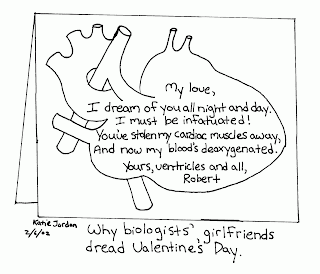 My love,
I dream of you all night and day.
I must be infatuated!
You've stolen my cardiac muscles away,
And now my blood's deoxygenated.
Yours, ventricles and all,
Robert
Katie Jordan
2/6/02
Why biologists' girlfriends
dread Valentine's Day.